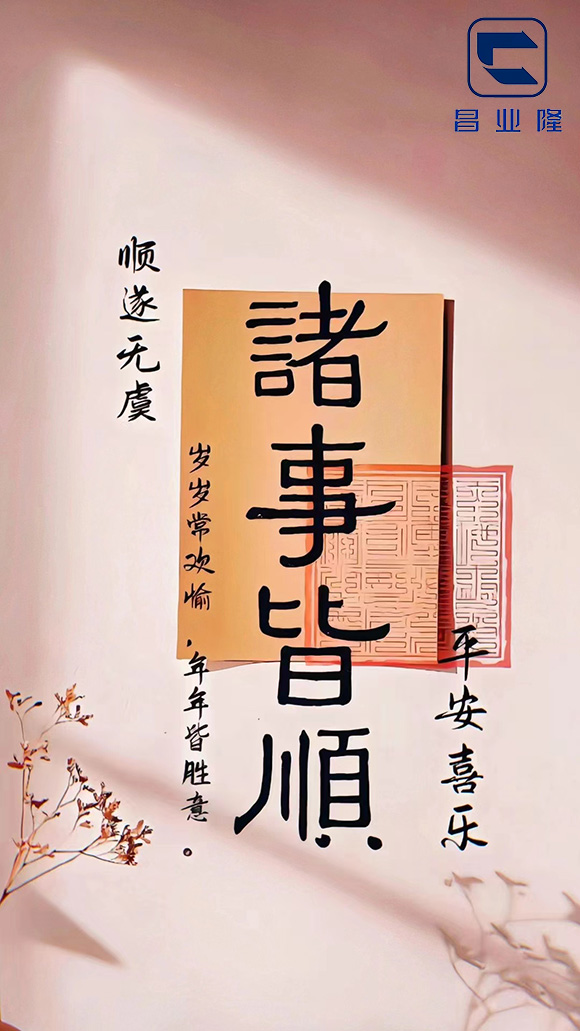 昌业隆
顺遂无虞
諸事皆順
岁岁常欢愉，年年皆胜意。
平安喜乐